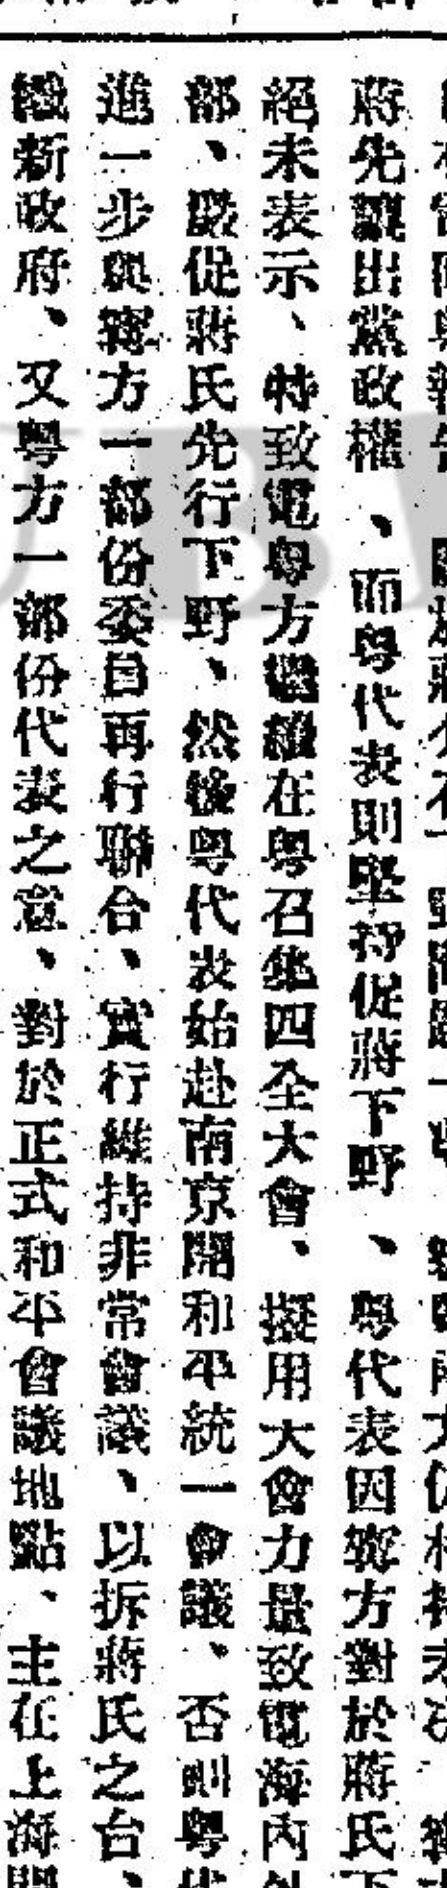 蔣先讓出黨政權、而粤代表則堅持促蔣下野、粤代表因寗方對於蔣氏下
絕未表示、特致電粤方繼續在粤召集四全大會、擬用大會力量致電海內外
部、嚴促蔣氏先行下野、然後粤代表始赴南京開和平統一會議、否則粤代
進一步與寗方一部份委員再行聯合、實行維持非常會議、以拆蔣氏之台、
織新政府、又粤方一部份代表之意、對於正式和平會議地點、主在上海開